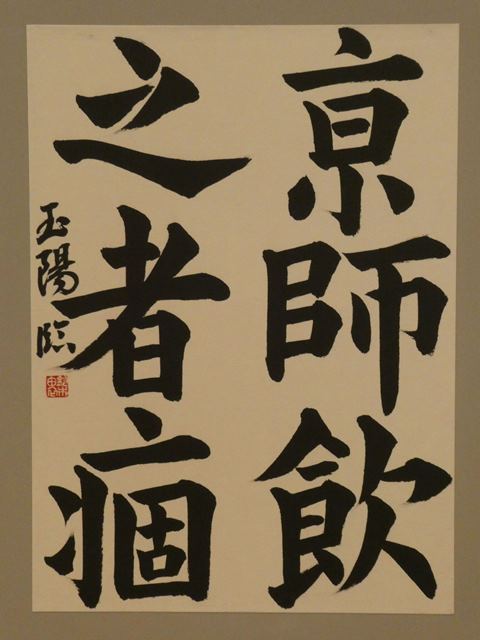 京師飲
之者痼
玉陽臨